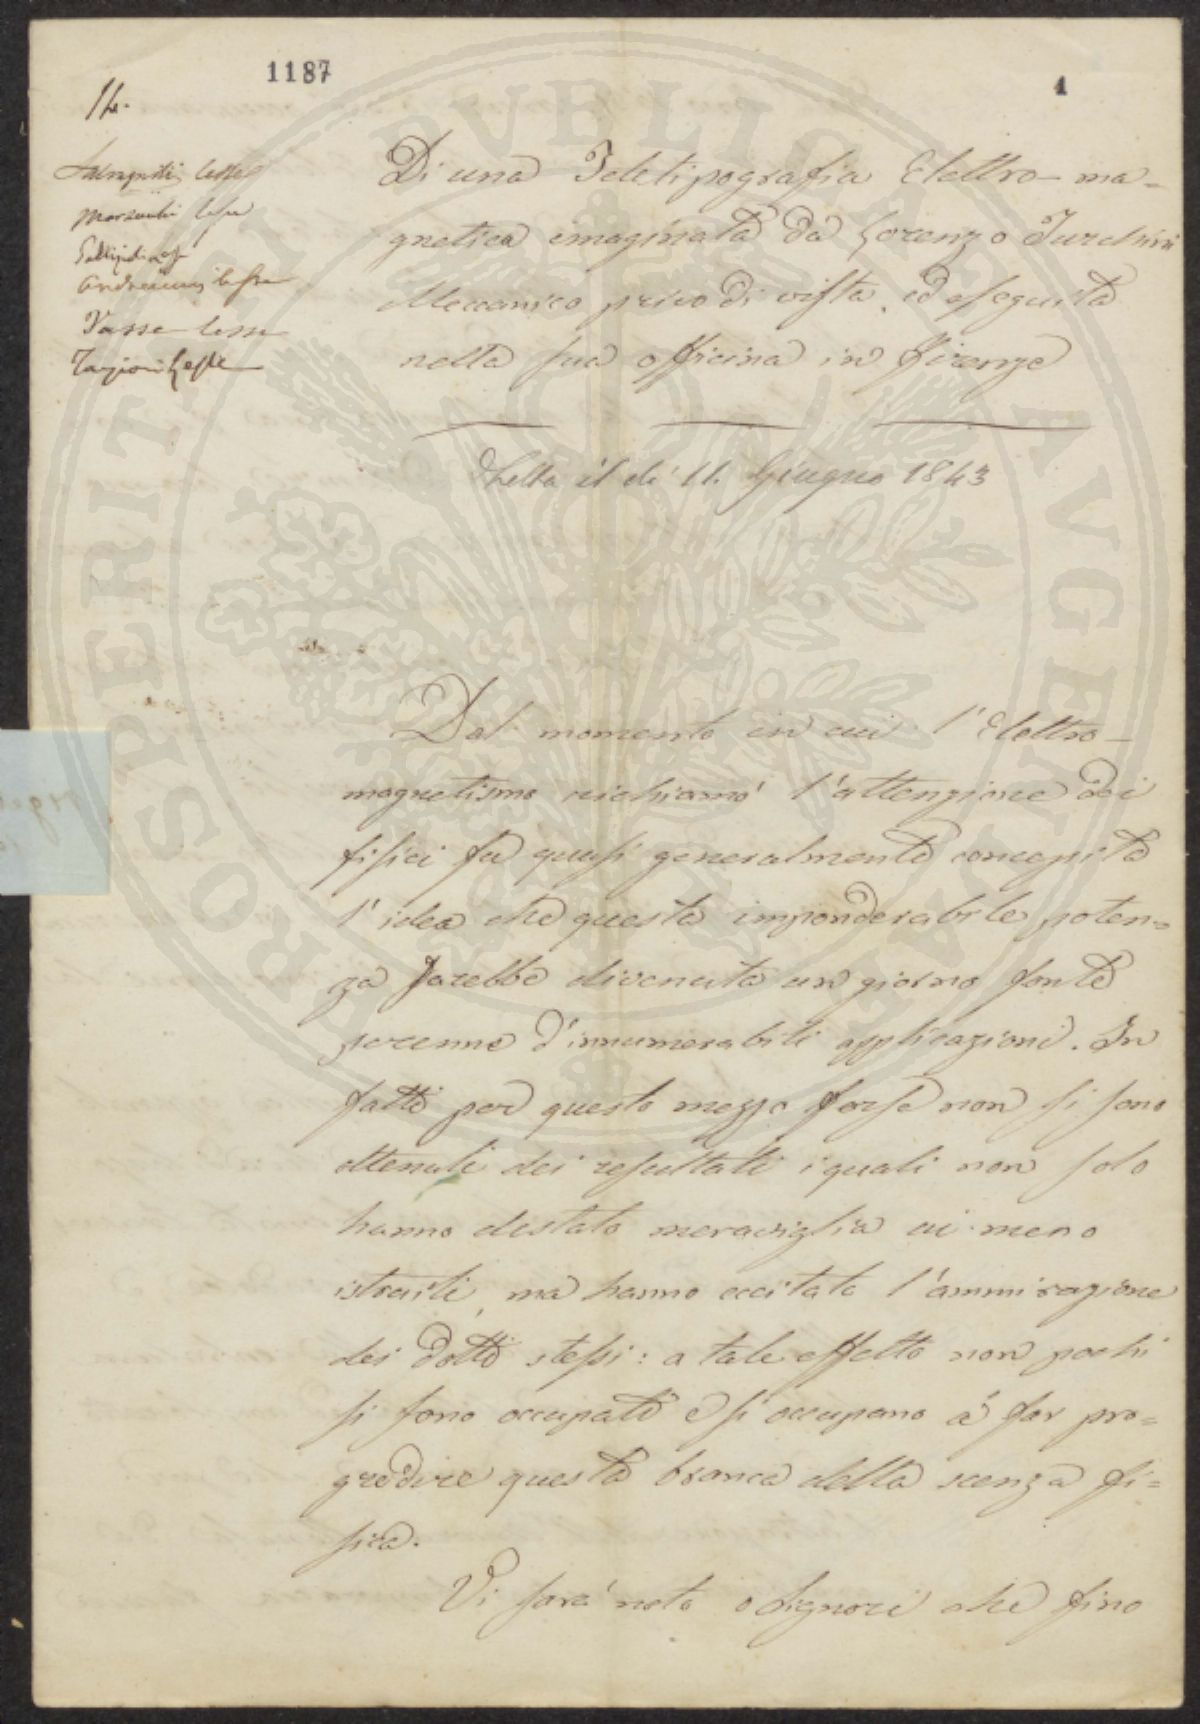 1187
1
14.
Di una Teletipografia Elettro-ma=
gnetica imaginata da Lorenzo Turchini
Meccanico privo di vista, ed eseguita
nella sua officina in Firenze
Letta il dì 11. Giugno 1843
Dal momento in cui l'Elettro-
magnetismo richiamò l'attenzione dei
fisici fu quasi generalmente concepita
l'idea che questa imponderabile poten=
za sarebbe divenuta un giorno fonte
perenne d'innumerabili applicazioni. In
fatti per questo mezzo forse non si sono
ottenuti dei resultati i quali non solo
hanno destato meraviglia ai meno
istruiti, ma hanno eccitato l'ammirazione
dei dotti stessi: a tale effetto non pochi
si sono occupati e si occupano a far pro=
gredire questa branca della scenza fi=
sica.
Vi sarà noto o Signori che fino
PROSPERITATI PVBLICAE AVGENDAE